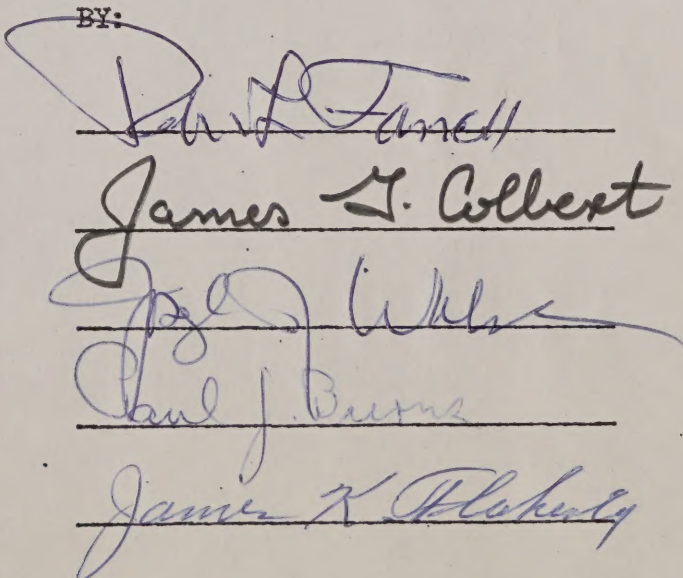 BY:
Robert L Farrell
James G. Colbert
Joseph J Walsh
Paul J. Burns
James K Flaherty